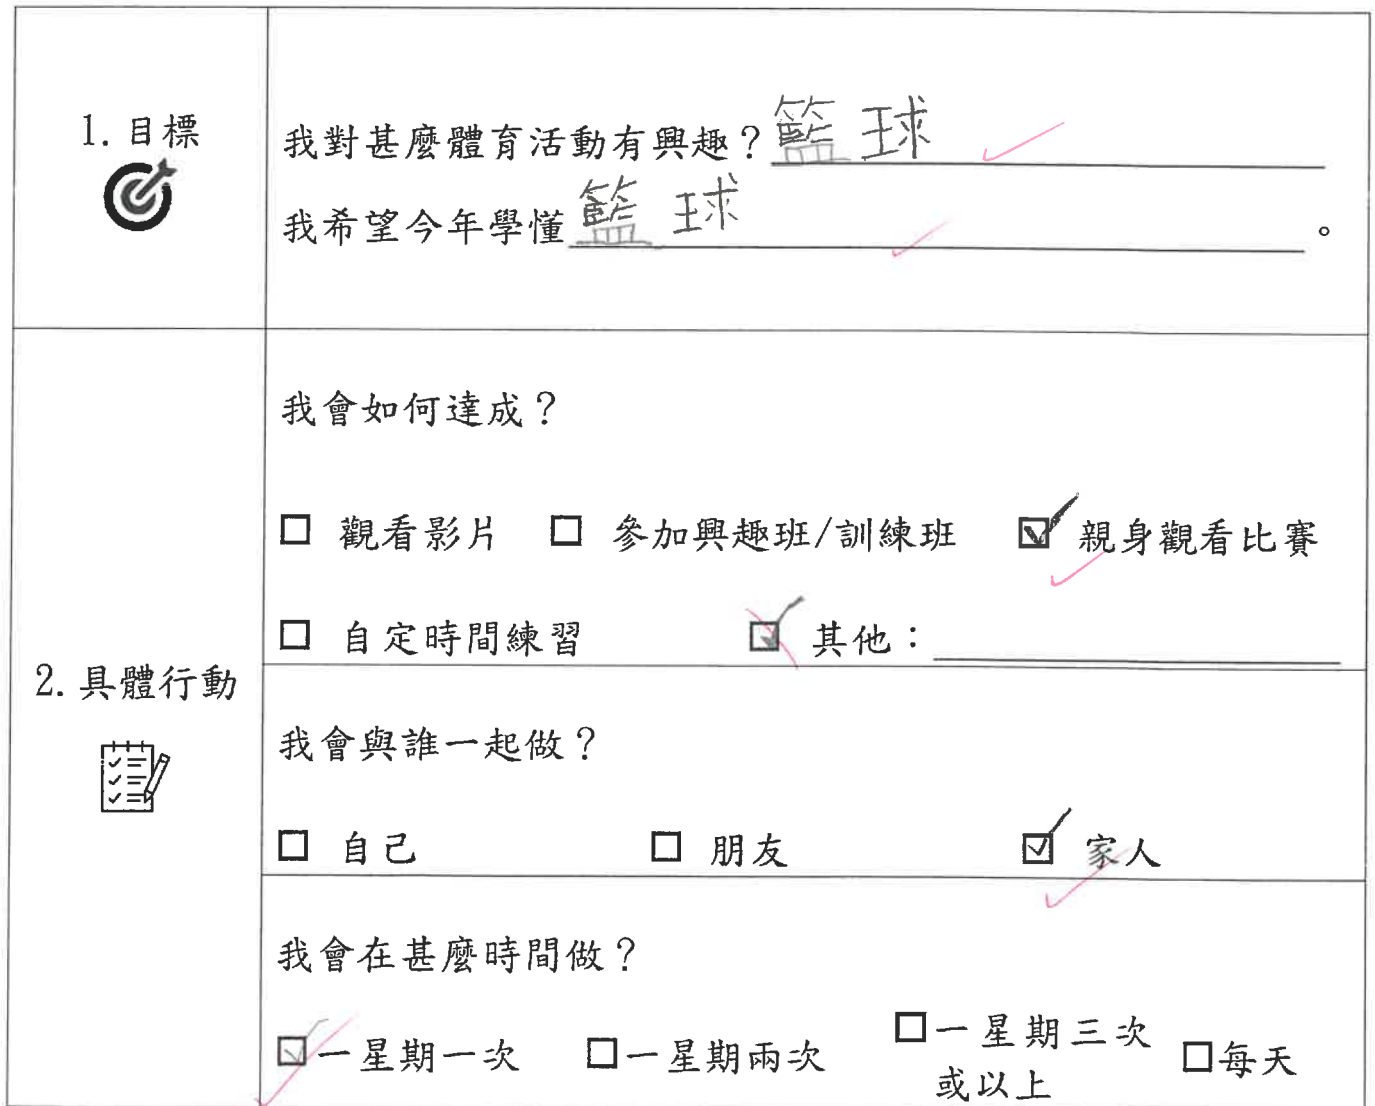 1. 目標
我對甚麼體育活動有興趣？籃球
我希望今年學懂籃球。
2. 具體行動
我會如何達成？
☐ 觀看影片 ☐ 參加興趣班/訓練班 ☑ 親身觀看比賽
☐ 自定時間練習 ☑ 其他：
我會與誰一起做？
☐ 自己 ☐ 朋友 ☑ 家人
我會在甚麼時間做？
☑一星期一次 ☐一星期兩次 ☐一星期三次或以上 ☐每天